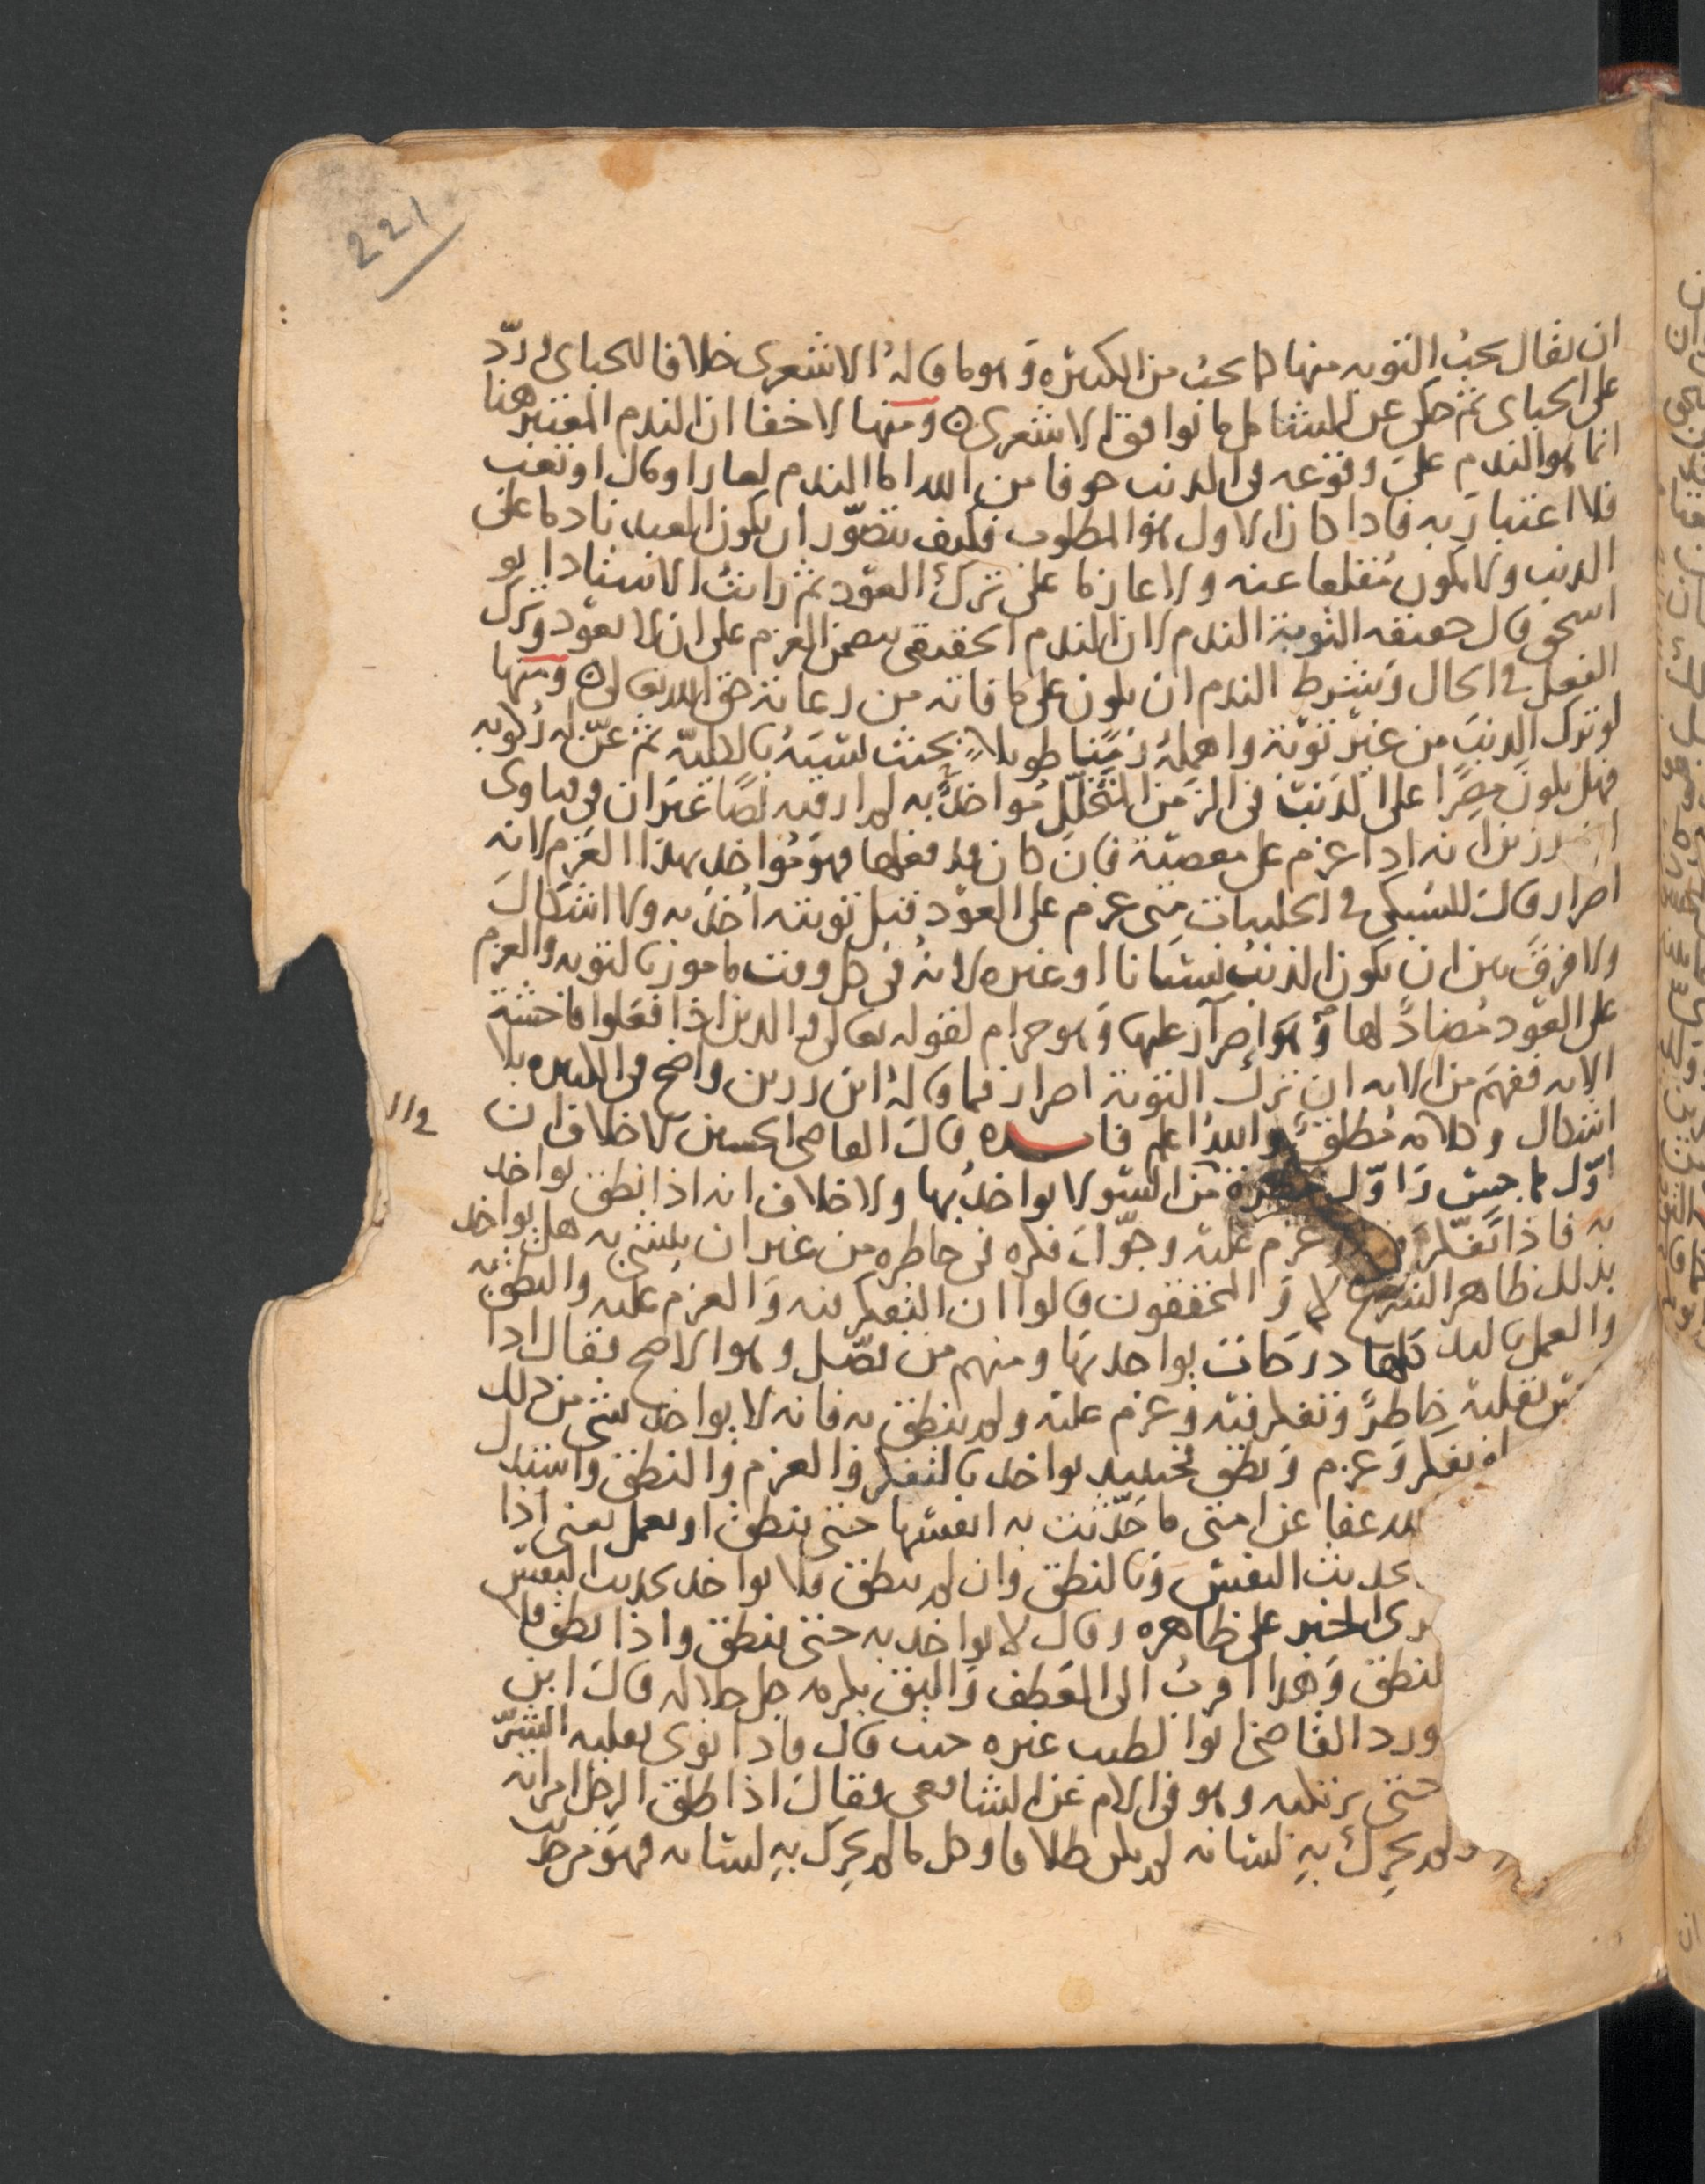 221
ان يقال يجب التوبه منها كما يجب من الكبيره وهو ما قاله الاشعرى خلافا للجباى ورد
على الجباى ثم حكى عن الشامل ما يوافق الاشعرى ومنها لا خفا ان الندم المعتبر هنا
انما هو الندم على وقوعه فى الذنب خوفا من الله اما الندم لعار او مال او تعب
فلا اعتبار به فاذا كان الاول هو المطلوب فكيف يتصور ان يكون العبد نادما على
الذنب ولا يكون مقلعا عنه ولا عازما على ترك العود ثم رايت الاستاد ابو
اسحق قال حقيقه التوبة الندم لان الندم الحقيقى يتضمن العزم على ان لا يعود وترك
الفعل فى الحال وشرط الندم ان يكون على ما فاته من رعاية حق الله تعالى ومنها
لو ترك الذنب من غير توبة واهمله زمنا طويلا بحيث نسيه بالكلية ثم عن له ركوبه
فهل يكون مصرا على الذنب فى الزمن المتخلل مواخذ به لم ار فيه نصا غير ان فى فتاوى
ابن رزين انه اذا عزم على معصية فان كان قد فعلها فهو مواخذ بهذا العزم لانه
اصرار وقال السبكى فى الحلبيات متى عزم على العود قبل توبته اخذ به ولا اشكال
ولا فرق بين ان يكون الذنب نسيانا او غيره لانه فى كل وقت مامور بالتوبه والعزم
على العود مضاد لها وهو اصرار عليها وهو حرام لقوله تعالى والذين اذا فعلوا فاحشة
الايه ففهم من الايه ان ترك التوبة اصرار فما قاله ابن رزين واضح فى الكبيره بلا
اشكال وكلامه مطلق والله اعلم فايده قال القاضى الحسين لا خلاف ان
اول ما حس واول خطرة من السو لا يواخذ بها ولا خلاف انه اذا نطق يواخذ
به فاذا تفكر عزم عليه وجول فكره فى خاطره من غير ان يلتبس به هل يواخذ
بذلك ظاهر الشرع لا والمحققون قالوا ان التفكر فيه والعزم عليه والنطق به
والعمل باليد كلها درجات يواخذ بها ومنهم من فصل وهو الاصح فقال اذا
بقلبه خاطر وتفكر فيه وعزم عليه ولم ينطق به فانه لا يواخذ بشى من ذلك
تفكر وعزم ونطق فحينيذ يواخذ بالتفكر والعزم والنطق واستدل
الله عفا عن امتى ما حدثت به انفسها حتى ينطق او يعمل يعنى اذا
بحديث النفس وبالنطق وان لم ينطق فلا يواخذ بحديث النفس
الخبر على ظاهره وقال لا يواخذ به حتى ينطق واذا نطق
وهذا اقرب الى العطف واليق بكرمه جل جلاله قال ابن
ورد القاضى ابو الطيب غيره حيث قال فاذا نوى بقلبه الشر
حتى يرتكبه وهو فى الام عن الشافعى فقال اذا طلق الرجل امراته
ولم يحرك به لسانه لم يكن طلاقا وكل ما لم يحرك به لسانه فهو من